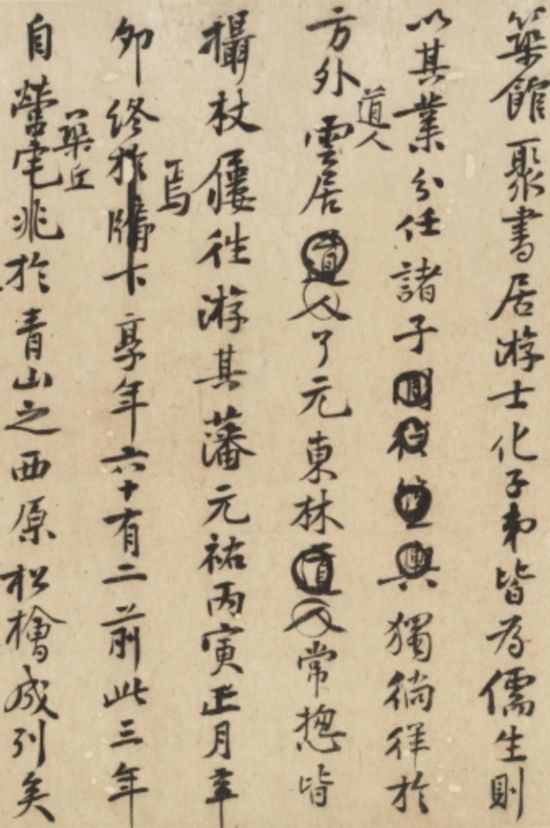 築館聚書居游士化子弟皆为儒生則
以其業分任諸子獨徜徉於
道人
方外雲居道人了元東林道人常揔皆
攝杖屨往游其藩元祐丙寅正月辛
焉
卯終於牖下享年六十有二前此三年
築丘
自營宅兆於青山之西原松檜成列矣